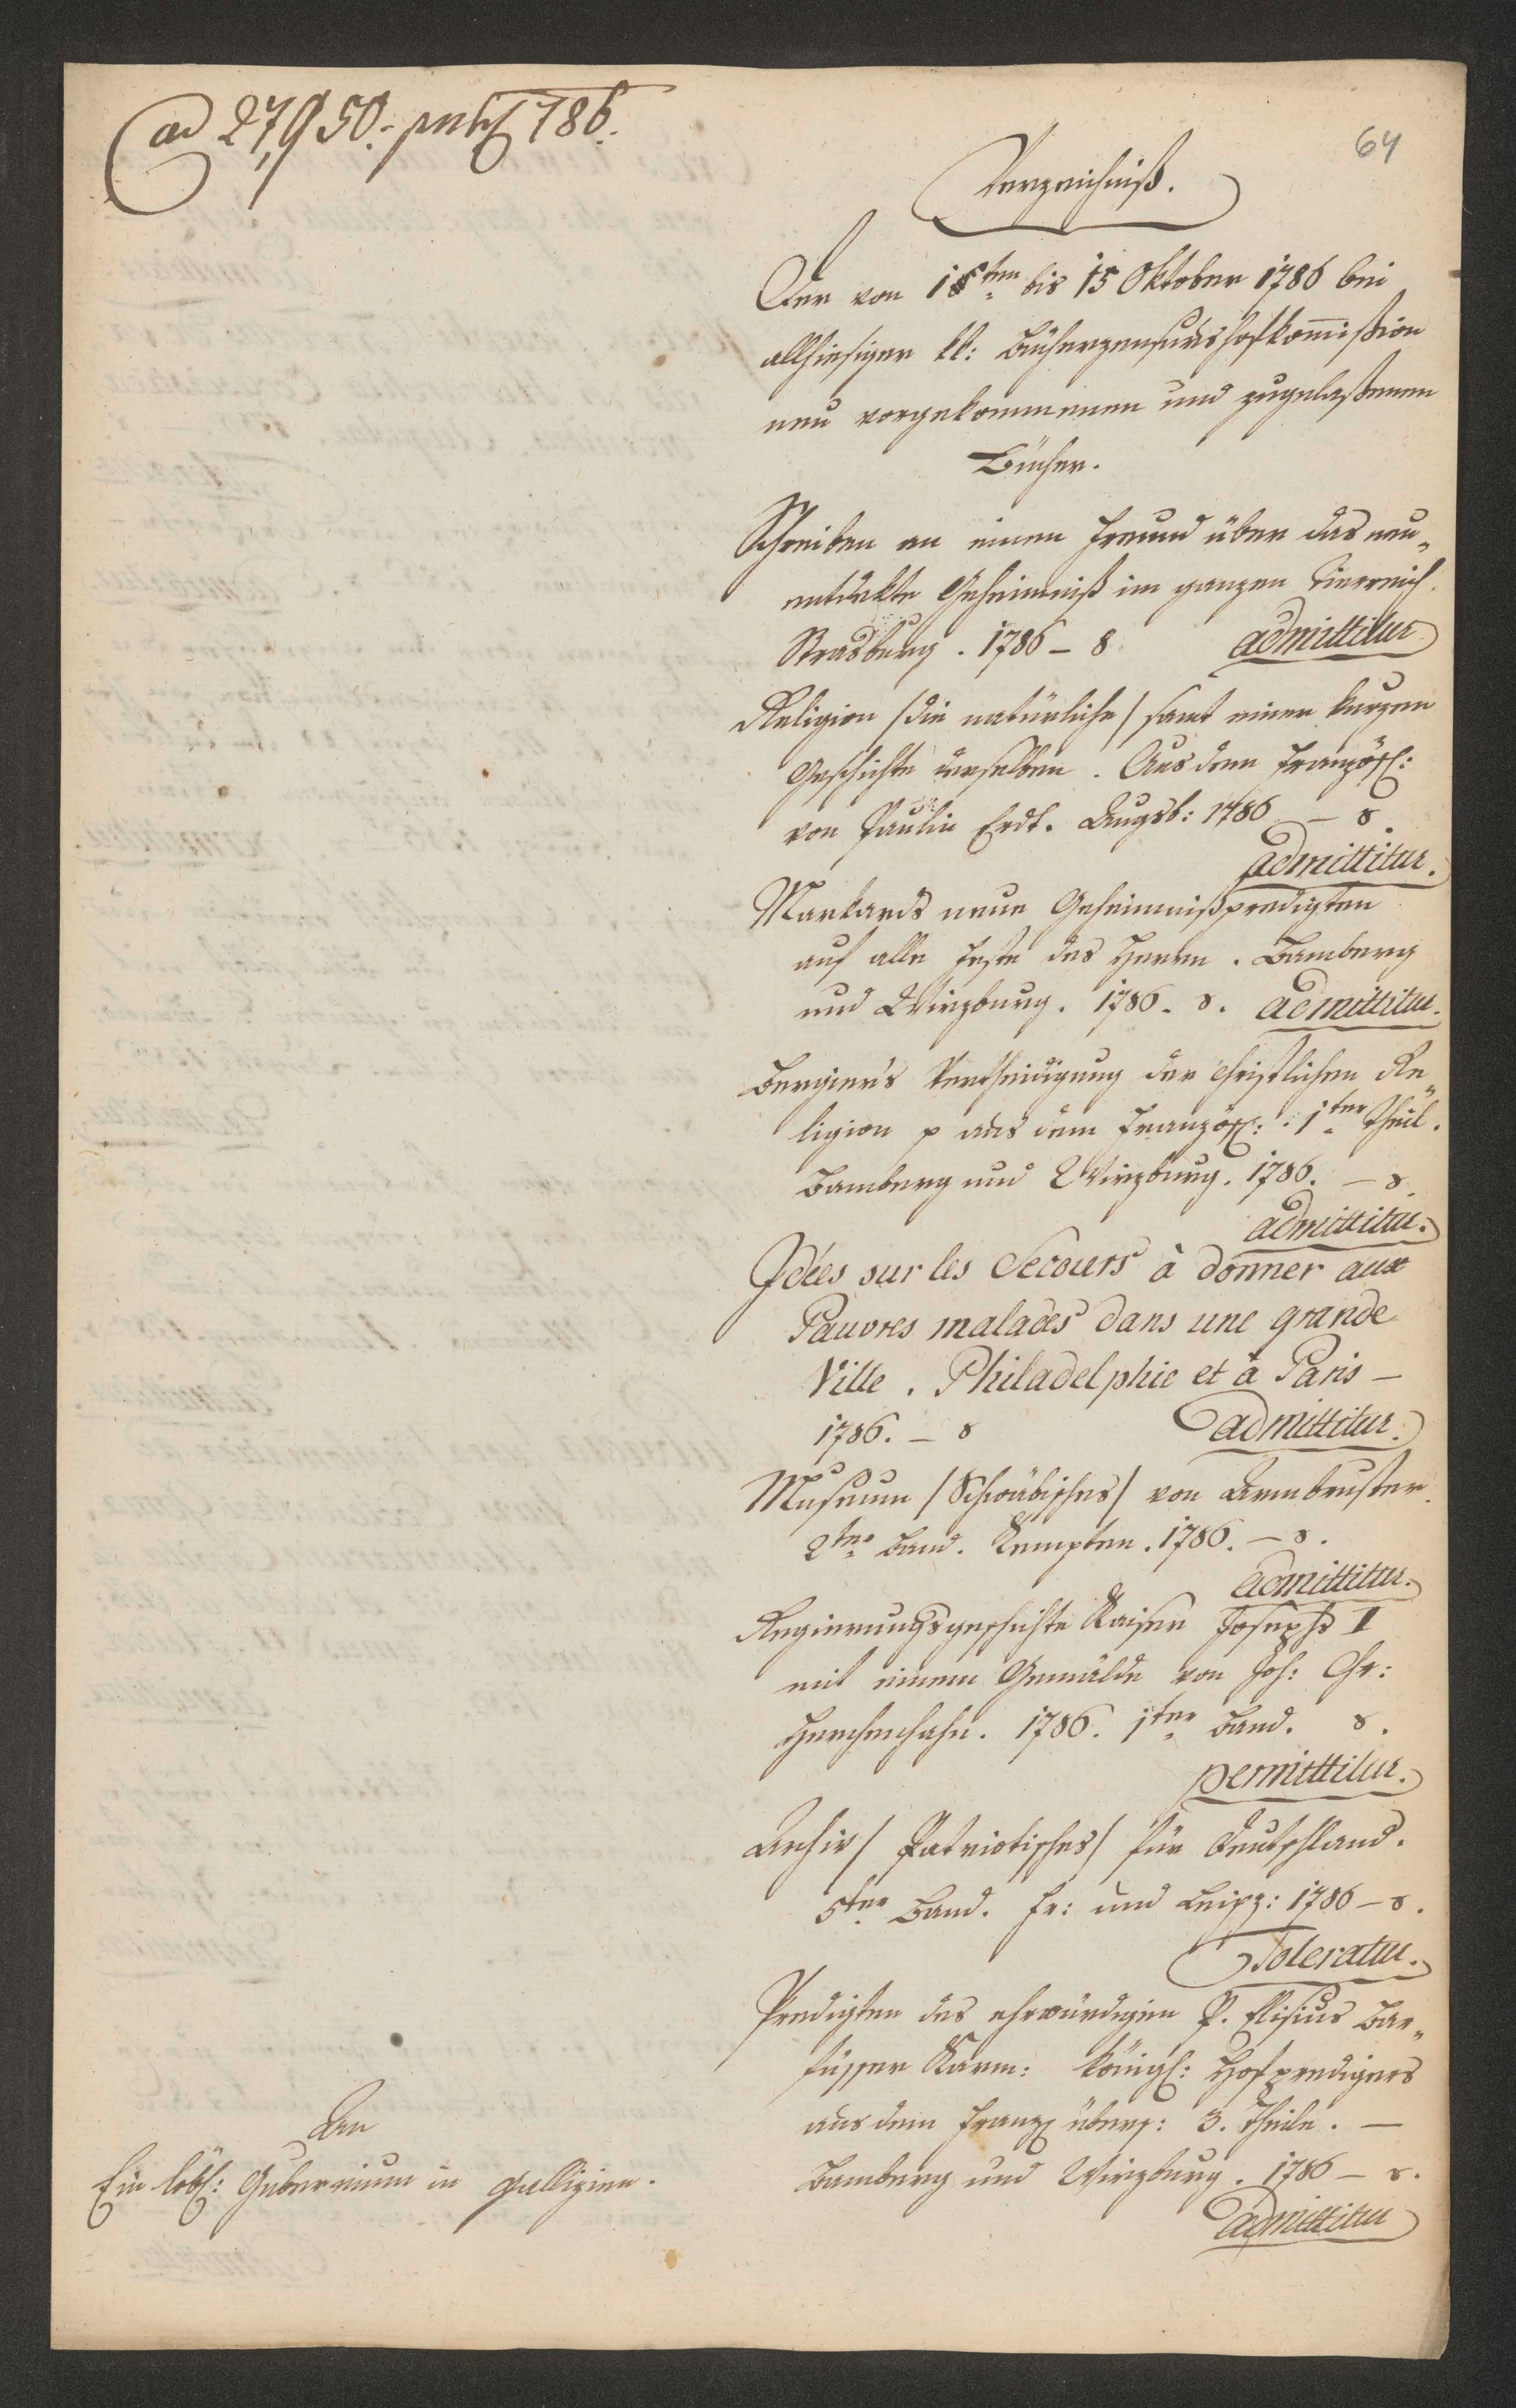 ad 27,950:
64
Verzeichniß.
Der von bis 15 Oktober 1786 bei
allhiesiger kk: Bücherzensurshofkom̄ißion
neu vorgekommenen und zugelaßenen
Bücher.
Schreiben an einen Freund über das neu„
entdekte Geheimniß im ganzen Tierreich.
Strasburg. 1786 – 8. admittitur
Religion /die natürliche/ samt einer kurzen
Geschichte derselben. Aus dem Französ:
von Paulin Erdt. Augsb: 1786 – 8.
admittitur.
Markards neue Geheimnißpredigten
auf alle Feste des Herrn. Bamberg
und Wirzburg. 1786. 8. admittitur.
Bergier's Vertheidigung der christlichen Re„
ligion p aus dem Französ: 1ter Theil.
Bamberg und Wirzburg. 1786. – 8.
admittitur.
Idées sur les Secours à donner aux
Pauvres malades dans une grande
Ville. Philadelphie et à Paris –
1786. – 8 admittitur.
Museum /Schwäbisches/ von Armbruster.
2ter Band. Kempten. 1786. – 8.
admittitur.
Regierungsgeschichte Kaiser Josephs II
mit einem Gemälde von Joh: Chr:
Herchenhahn. 1786. 1ter Band. 8.
permittitur.
Archiv / Patriotisches/ für Deutschland.
5ter Band. Fr: und Leipz: 1786 – 8.
Toleratur.
Predigten des ehrwürdigen P. Elisäus Bar„
füsser Karm: königl: Hofpredigers
aus dem Franz übers: 3. Theile. –
Bamberg und Wirzburg. 1786 – 8.
admittitur
An
Ein löbl: Gubernium in Gallizien.